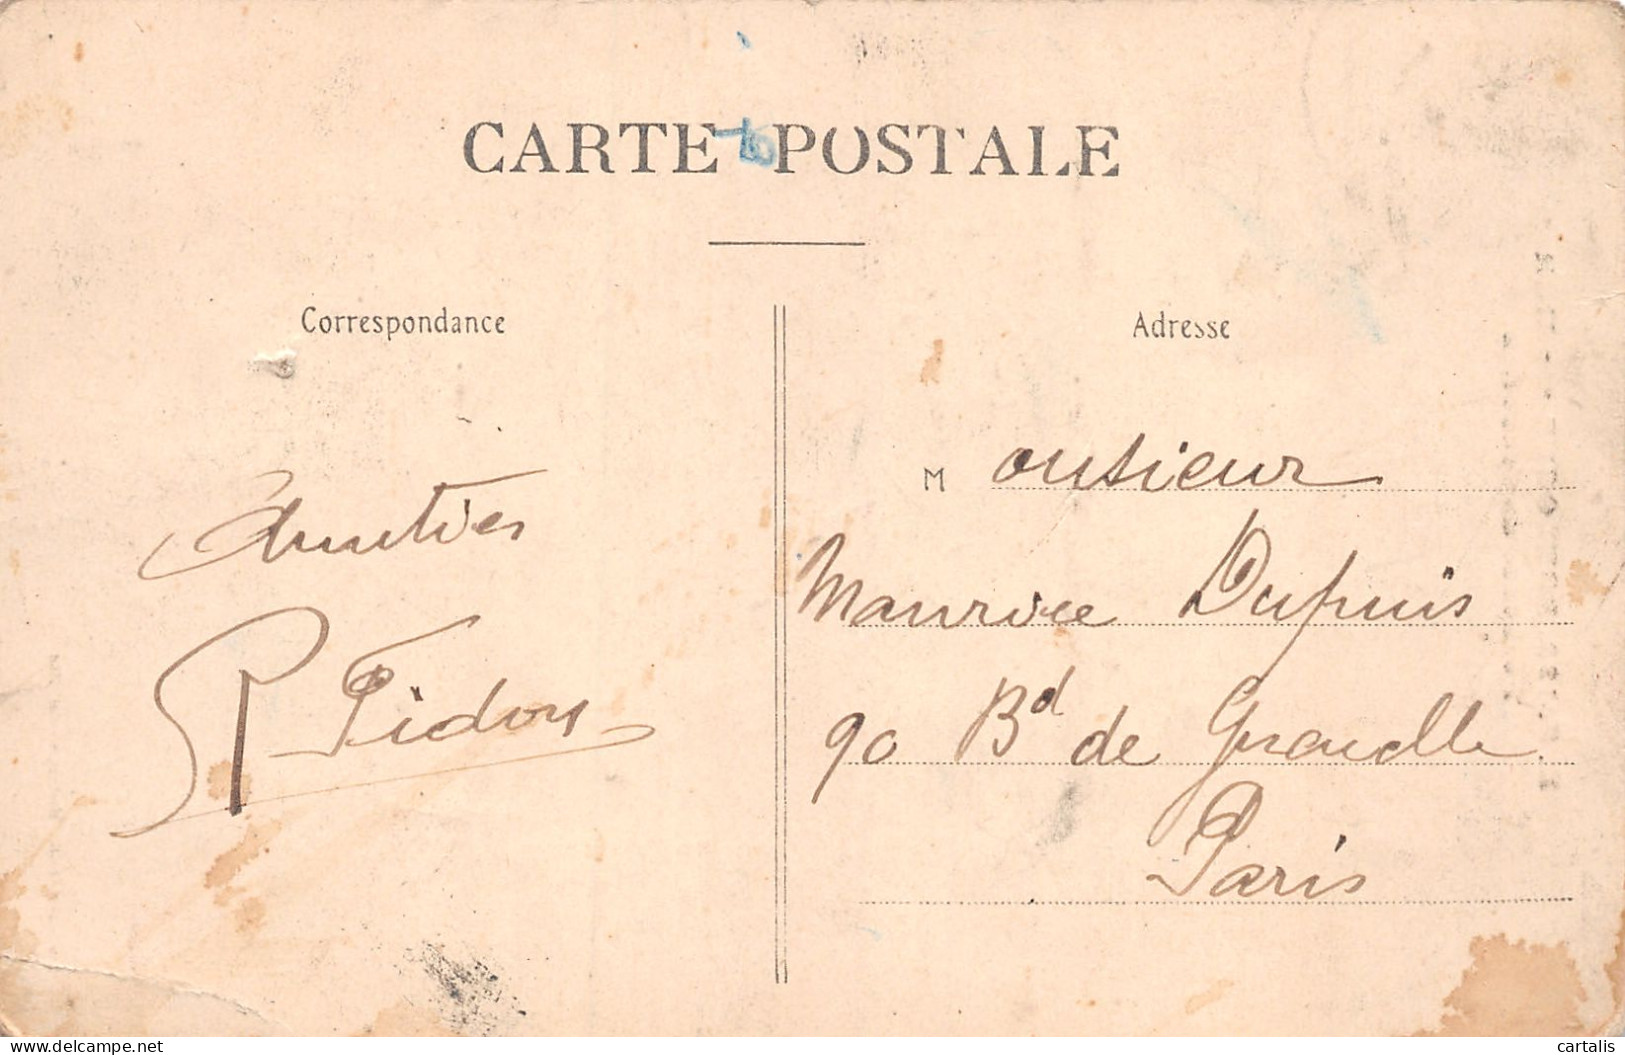 CARTE POSTALE
Correspondance
Adresse
Amitiés
Pidoux
Monsieur
Maurice Dupuis
90 Bd de Grenelle
Paris
delcampe.net
cartalis